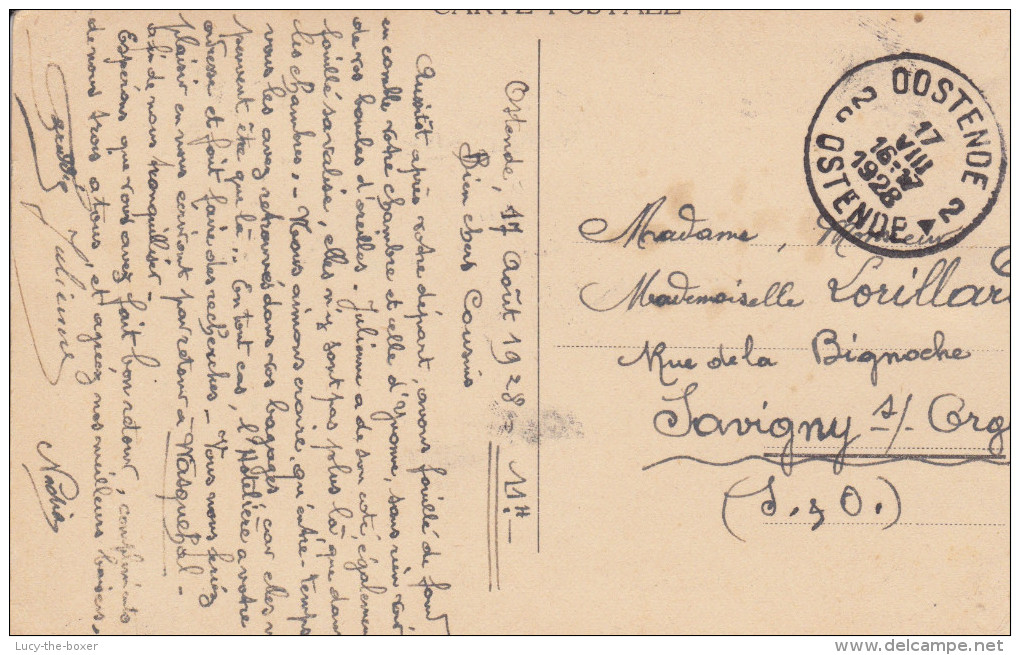 CARTE POSTALE
Ostende, 17 août 1928 – 11H –
Bien chers Cousins
Aussitôt après votre départ, avons fouillé de fond
en comble votre chambre et celle d'Yvonne, sans rien voir
de vos boucles d'oreilles. Julienne a de son côté, égalemen
fouillé sa valise, elles n'y sont pas plus là, que dans
les chambres. – Nous aimons croire, qu'entre-temps
vous les avez retrouvées dans vos bagages car elles n
peuvent être que là... En tout cas, l'Hôtelière a votre
adresse et fait faire des recherches – Vous nous feriez
plaisir en nous écrivant par retour à Wasquehal –
afin de nous tranquilliser –
Espérons que vous avez fait bon retour, compliments
de nous trois à tous et agréez nos meilleurs baisers,
Julienne
Nadia
OOSTENDE 2
17
VIII
16-17
1928
2c OSTENDE
Madame, Monsieur
Mademoiselle Lorillar
Rue de la Bignoche
Savigny s/. Org
(S. & O.)
Lucy-the-boxer
delcampe.net